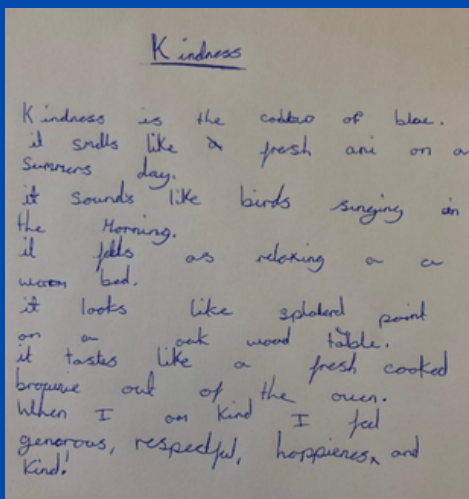 Kindness
Kindness is the of blue.
it smells like a fresh on a
Summers day.
it sounds like birds singing in
the Morning.
it as relaxing a
warm bed.
it looks like paint
on a oak wood table.
it tastes like a fresh cooked
out of the oven.
When I am Kind I feel
generous, respectful, and
Kind!